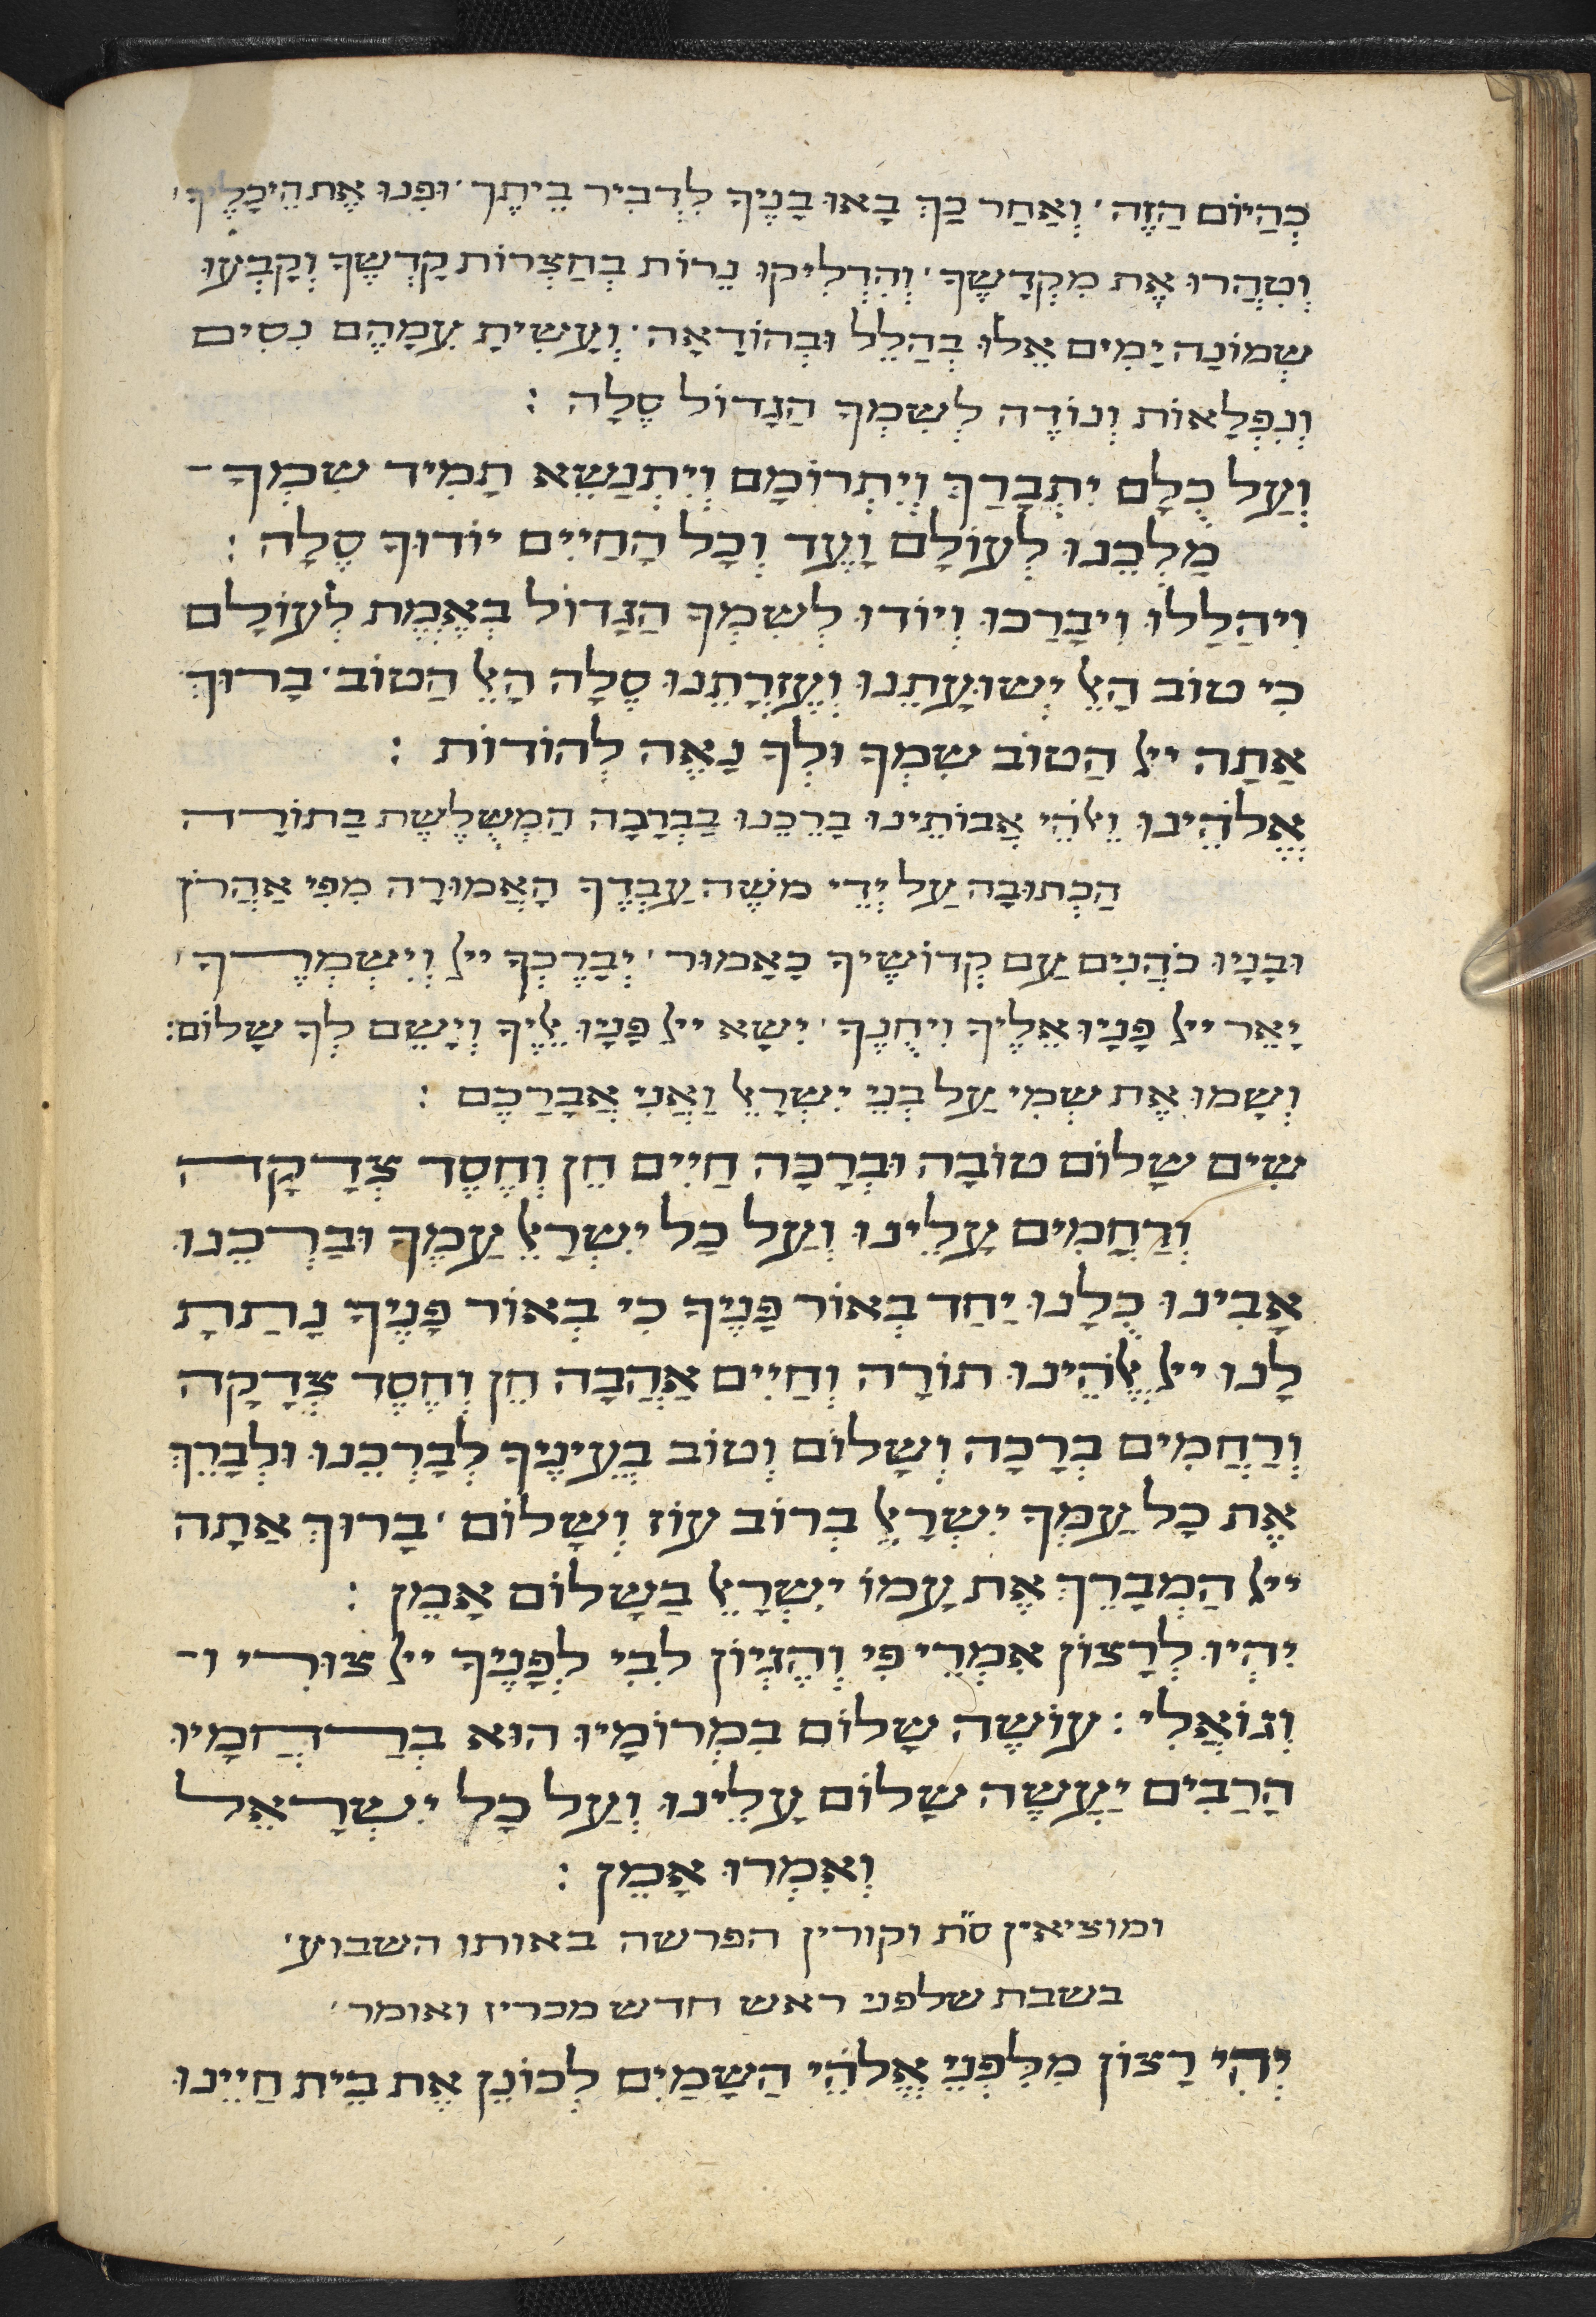 כְּהַיּוֹם הַזֶּה׳ וְאַחַר כַּךְ בָּאוּ בָנֶיךָ לִדְבִיר בֵּיתֶךָ׳ וּפִנוּ אֶת הֵיכָלֶיךָ׳
וְטִהֲרוּ אֶת מִקְדָשֶׁךָ׳ וְהִדְלִיקוּ נֵרוֹת בְּחַצְרוֹת קָדְשֶׁךָ וְקָבְעוּ
שְׁמוֹנָה יָמִים אֵלוּ בְּהַלֵל וּבְהוֹדָאָה׳ וְעָשִׂיתָ עִמָהֶם נִסִים
וְנִפְלָאוֹת וְנוֹדֶה לְשִׁמְךָ הַגָדוֹל סֶלָה :
וְעַל כֻּלָם יִתְבָּרַךְ וְיִתְרוֹמָם וְיִתְנַשֵׂא תָמִיד שִׁמְךָ -
מַלְכֵּנוּ לְעוֹלָם וָעֶד וְכָל הָחַיִים יוֹדוּךָ סֶלָה :
וִיהַלַלוּ וִיבָרַכוּ וְיוֹדוּ לְשִׁמְךָ הַגָדוֹל בְּאֱמֶת לְעוֹלָם
כִּי טוֹב הָאֵל יְשׁוּעָתֵנוּ וְעֶזְרָתֵנוּ סֶלָה הָאֵל הַטוֹב׳ בָּרוּךְ
אַתָה ייל הַטוֹב שִׁמְךָ וּלְךָ נָאֶה לְהוֹדוֹת :
אֱלֹהֵינוּ וֵאלֹהֵי אֲבוֹתֵינוּ בָּרְכֵנוּ בַּבְּרָכָה הַמְשֻׁלֶשֶׁת בַּתוֹרָה
הַכְּתוּבָה עַל יְדֵי מֹשֶׁה עַבְדֶךָ הָאֲמוּרָה מִפִּי אַהֲרֹן
וּבָנָיו כֹּהֲנִים עַם קְדוֹשֶׁיךָ כָּאָמוּר׳ יְבָרֶכְךָ ייל וְיִשְׁמְרֶךָ׳
יָאֵר ייל פָּנָיו אֵלֶיךָ וִיחֻנֶךָ׳ יִשָׂא ייל פָּנָיו אֵלֶיךָ וְיָשֵׂם לְךָ שָׁלוֹם:
וְשָׂמוּ אֶת שְׁמִי עַל בְּנֵי יִשְׂרָאֵל וַאֲנִי אֲבָרַכֶם :
שִׂים שָׁלוֹם טוֹבָה וּבְרָכָה חַיִים חֵן וְחֶסֶד צְדָקָה
וְרַחֲמִים עָלֵינוּ וְעַל כָּל יִשְׂרָאֵל עַמֶךָ וּבַרְכֵנוּ
אָבִינוּ כֻּלָנוּ יַחַד בְּאוֹר פָּנֶיךָ כִּי בְאוֹר פָּנֶיךָ נָתַתָ
לָנוּ ייל אֱלֹהֵינוּ תּוֹרָה וְחַיִים אַהֲבָה חֵן וְחֶסֶד צְדָקָה
וְרַחֲמִים בְּרָכָה וְשָׁלוֹם וְטוֹב בְּעֵינֶיךָ לְבָרְכֵנוּ וּלְבָרֵךְ
אֶת כָּל עַמְךָ יִשְׂרָאֵל בְּרוֹב עוֹז וְשָׁלוֹם׳ בָּרוּךְ אַתָה
ייל הַמְבָרֵךְ אֶת עָמוֹ יִשְׂרָאֵל בַּשָׁלוֹם אָמֵן :
יִהְיוּ לְרָצוֹן אִמְרֵי פִי וְהֶגְיוֹן לִבִּי לְפָנֶיךָ ייל צוּרִי ו-
וְגוֹאֲלִי : עוֹשֶׂה שָׁלוֹם בִּמְרוֹמָיו הוּא בְּרַחֲמָיו
הָרַבִּים יַעֲשֶׂה שָׁלוֹם עָלֵינוּ וְעַל כָּל יִשְׂרָאֵל
וְאִמְרוּ אָמֵן :
ומוציאין ס״ת וקורין הפרשה באותו השבוע׳
בשבת שלפני ראש חדש מכריז ואומר׳
יְהִי רָצוֹן מִלִפְנֵי אֱלֹהֵי הַשָׁמַיִם לְכוֹנֵן אֶת בֵּית חַיֵינוּ